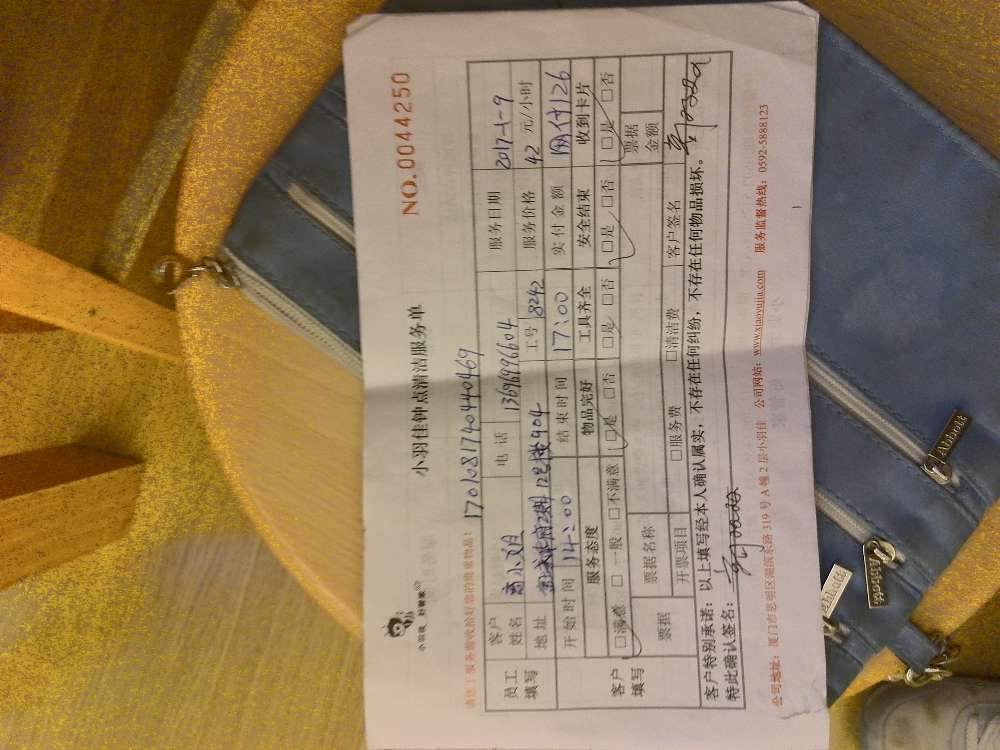 NO.0044250
小羽佳 好管家
小羽佳钟点清洁服务单
请您于服务前收拾好您的贵重物品!
17010817404440469
员工填写 客户姓名 电话 13696996604 服务日期 2017-1-9
地址 12号楼904 工号 8242 服务价格 42 元/小时
开始时间 14:00 结束时间 17:00 实付金额 网付126
客户填写 服务态度 物品完好 工具齐全 安全结束 收到卡片
□满意 □一般 □不满意 □是 □否 □是 □否 □是 □否 □是 □否
票据 票据名称 票据金额
开票项目 □服务费 □清洁费 客户签名
客户特别承诺:以上填写经本人确认属实,不存在任何纠纷,不存在任何物品损坏。
特此确认签名:
公司地址:厦门市思明区湖滨东路 319 号 A 幢 2 层小羽佳 公司网站:www.xiaoyujia.com 服务监督热线:0592-5888123
Abbott
Abbott
Abbott